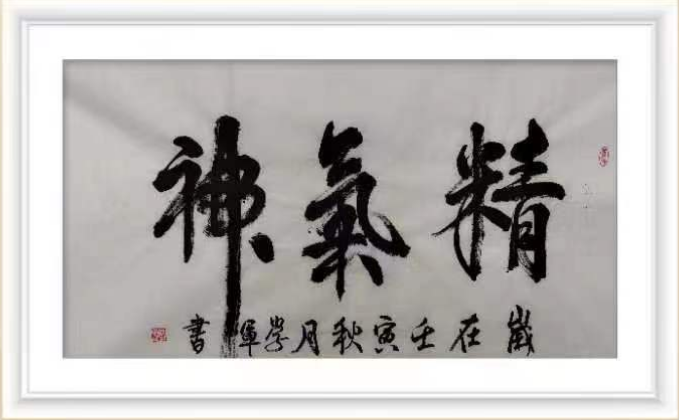 精氣神
歲在壬寅秋月學軍書